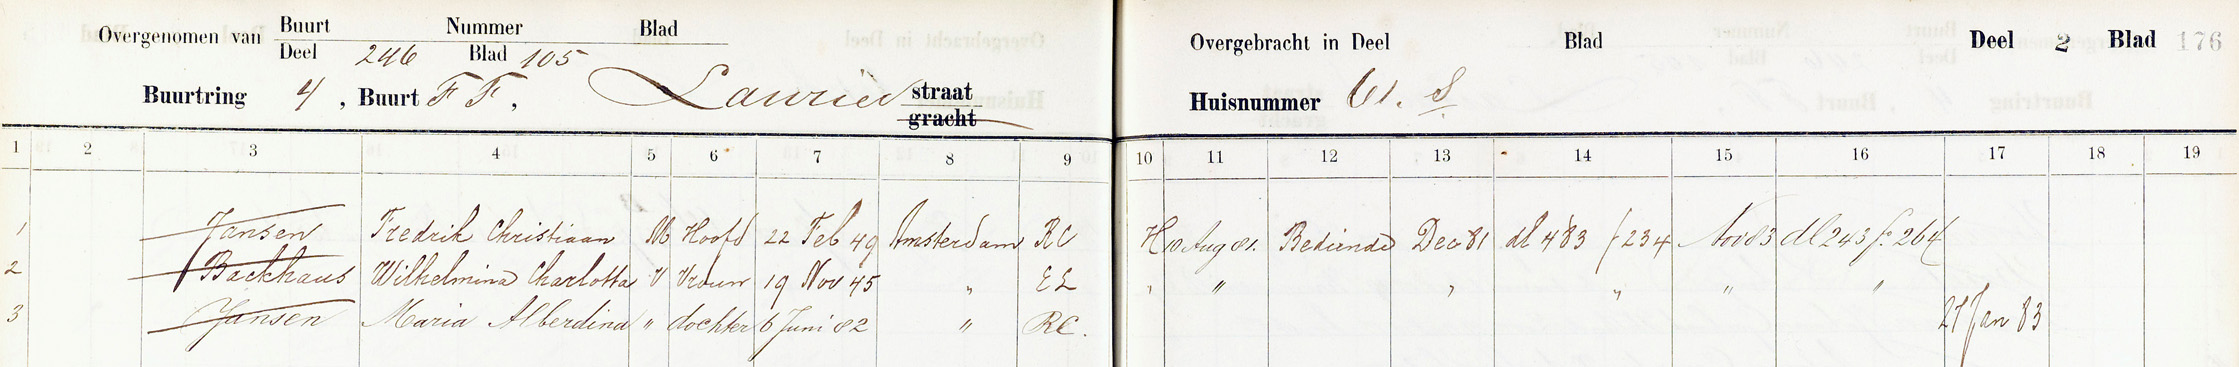 Overgenomen van Buurt Nummer Blad
Deel 246 Blad 105
Buurtring 4, Buurt FF, Laurier straat
gracht
Overgebracht in Deel Blad Deel 2 Blad 176
Huisnummer 61. S
1 2 3 4 5 6 7 8 9 10 11 12 13 14 15 16 17 18 19
1 Jansen Fredrik Christiaan M Hoofd 22 Feb 49 Amsterdam RC H 10 Aug 81. Bediende Dec 81 dl 483 f 234 Nov 83 dl 243 f. 264
2 Backhaus Wilhelmina Charlotta V Vrouw 19 Nov 45 " EL " " " " " "
3 Jansen Maria Alberdina " dochter 6 Juni 82 " RC. 27 Jan 83